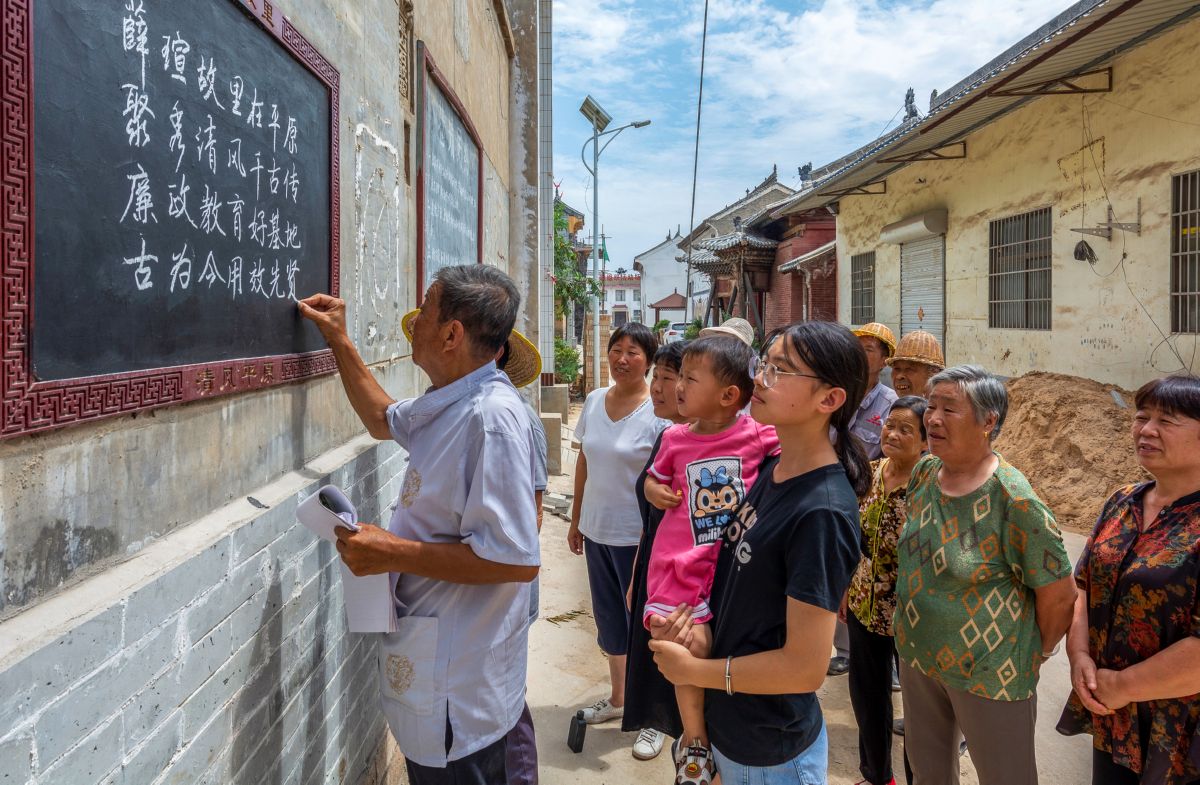 里
薛瑄故里在平原
聚秀清风千古传
廉政教育好基地
古为今用效先贤
清风平原
WE